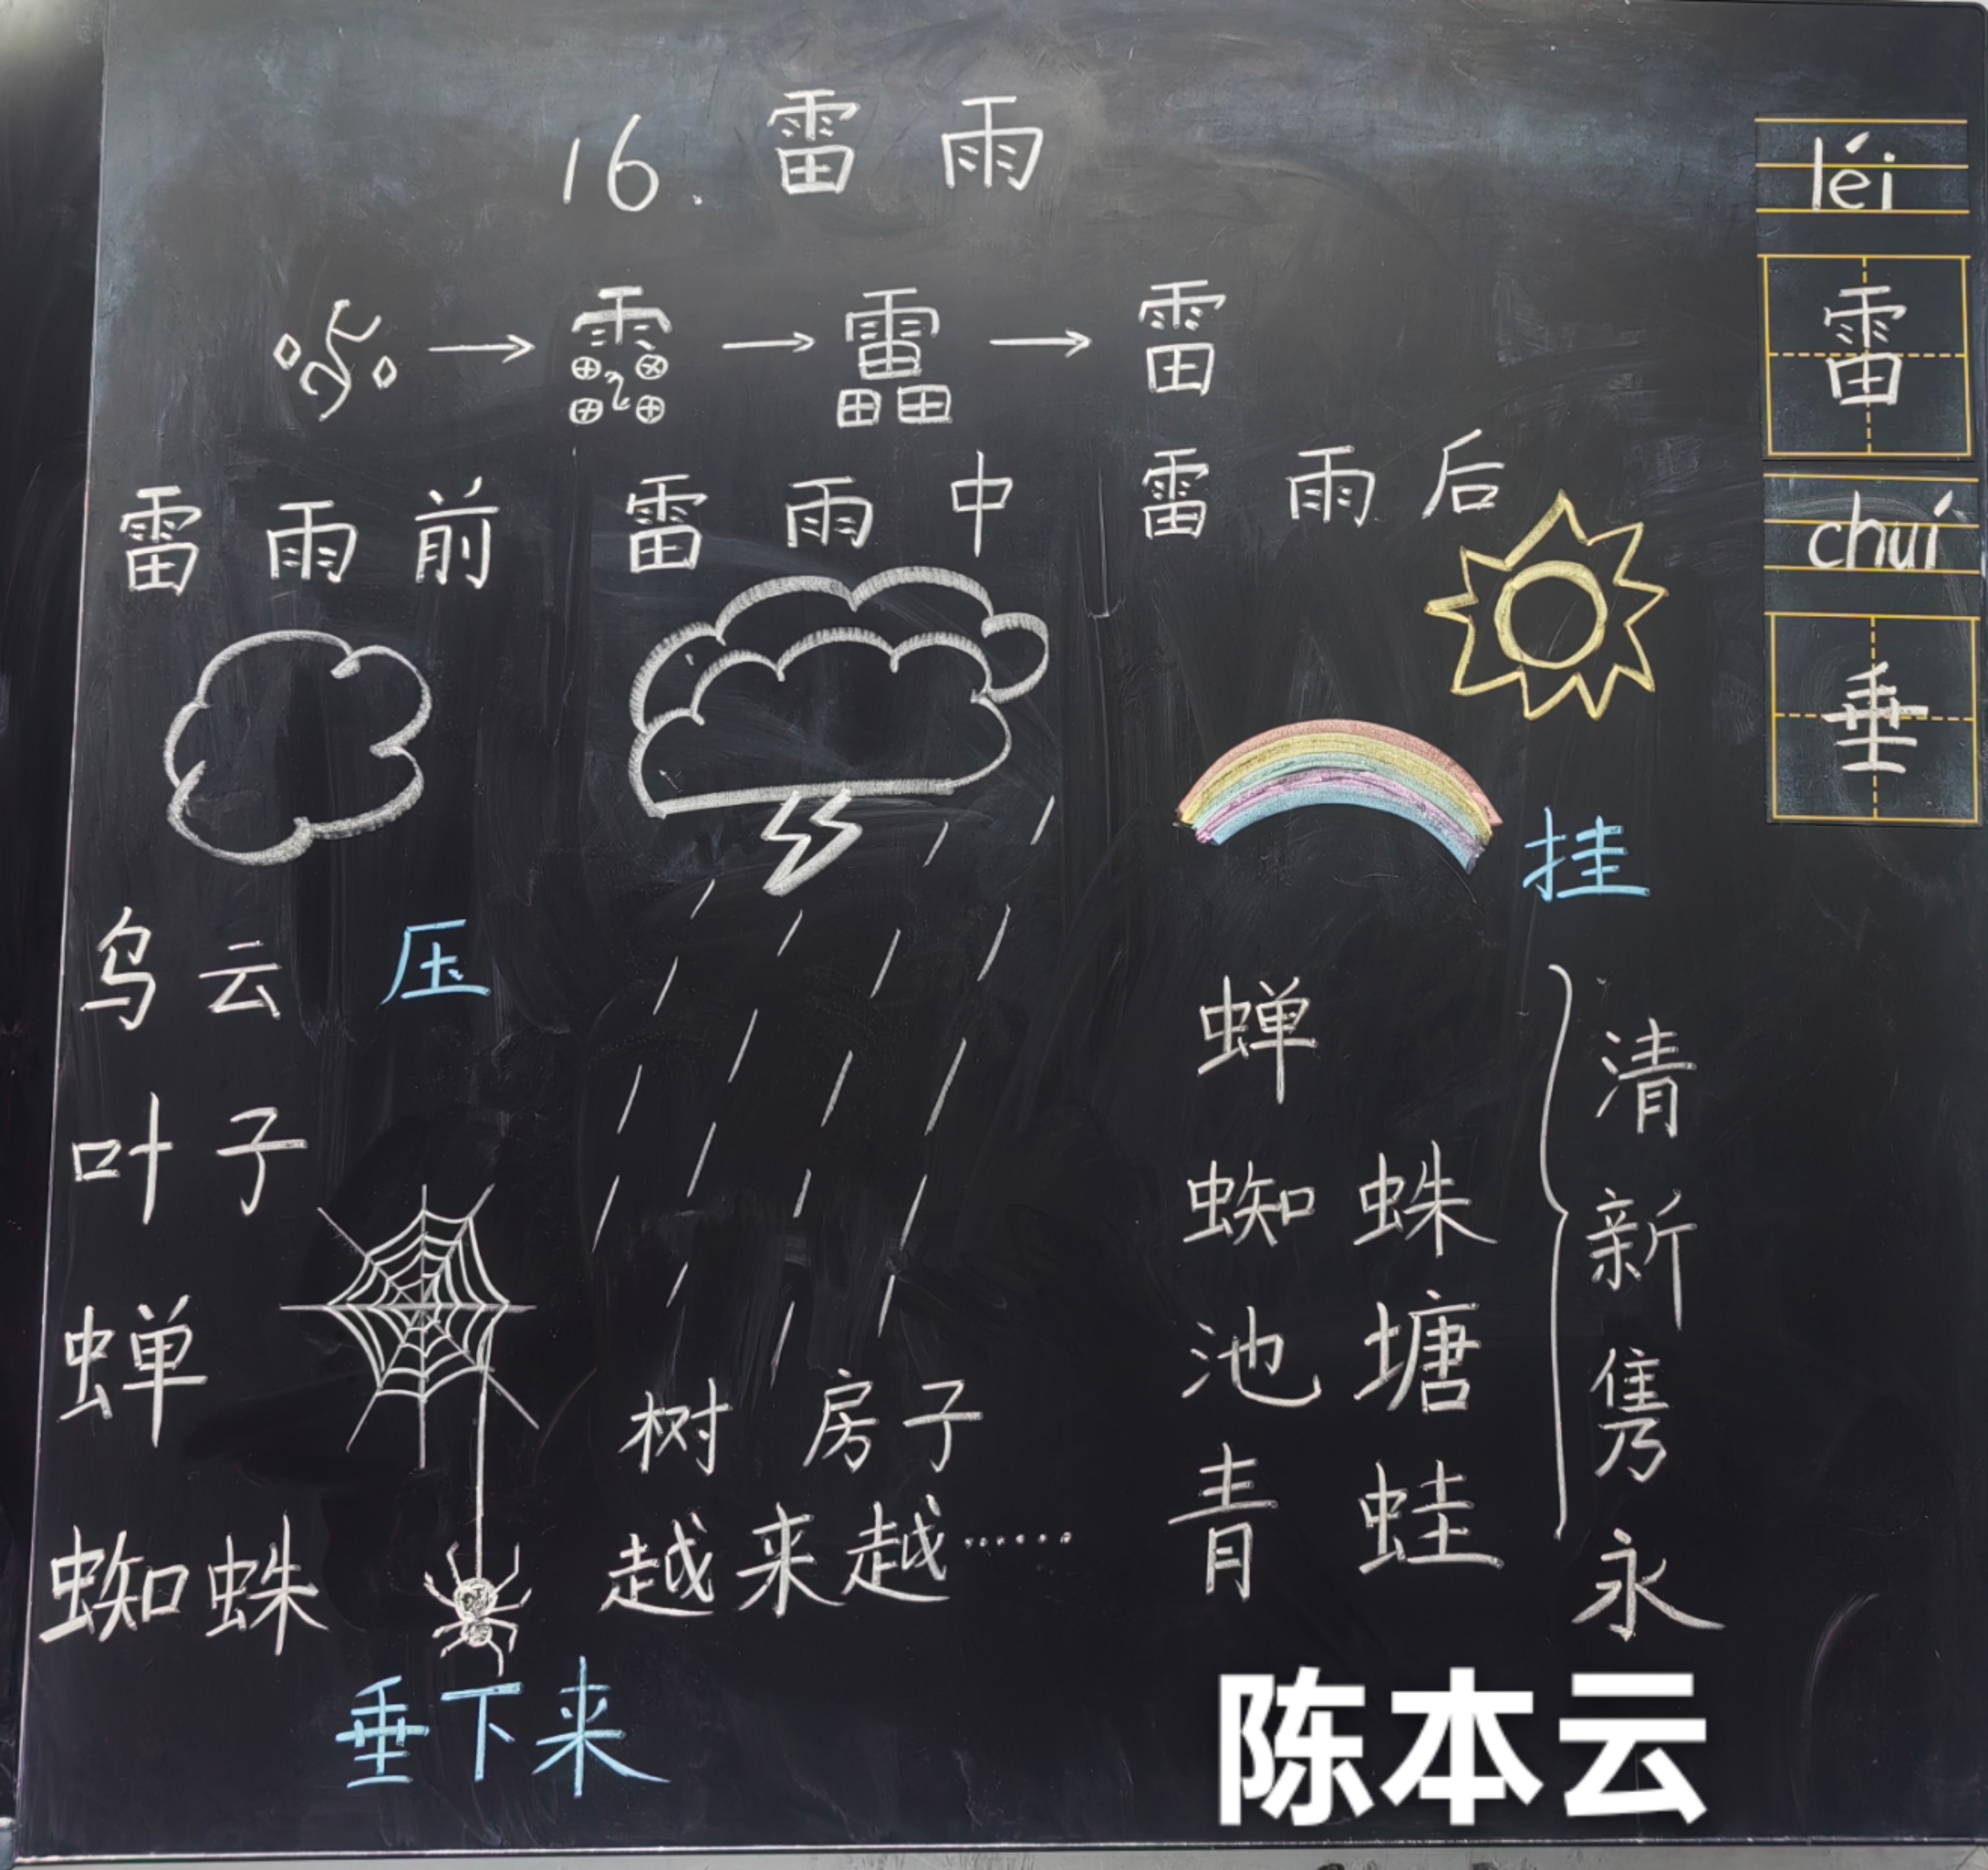 16. 雷雨
雷
雷雨前
雷雨中
雷雨后
乌云 压
叶子
蝉
蜘蛛
垂下来
树 房子
越来越……
挂
蝉
蜘蛛
池塘
青蛙
清新隽永
léi
雷
chuí
垂
陈本云